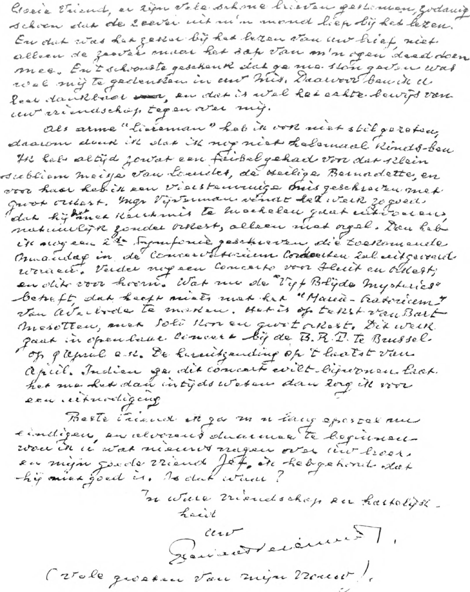 Beste Vriend, er zijn vele schone brieven geschreven, zodanig
schoon dat de zeever uit m'n mond liep bij het lezen.
En dat was het geval bij het lezen van uw brief, niet
alleen de zeever maar het sap van m'n ogen deed toen
mee. En 't schoonste geschenk dat ge me kon geven was
wel mij te gedenken in uw Mis. Daarvoor ben ik u
zeer dankbaar, en dat is wel het echte bewijs van
uw vriendschap tegenover mij.
Als arme "Liereman" heb ik ook niet stil gezeten,
daarom denk ik dat ik nog niet helemaal kinds ben
Ik heb altijd zowat een faibel gehad voor dat klein
meisje van Lourdes, de Heilige Bernadette, en
voor haar heb ik een vierstemmige mis geschreven met
groot orkest. Mgr Vijverman vindt het werk zo goed
dat hij met Kerstmis te Mechelen gaat uitvoeren,
natuurlijk zonder orkest, alleen met orgel. Dan heb
ik nog een 2de Symfonie geschreven, die toekomende
Maandag in de Conservatorium Concerten zal uitgevoerd
worden. Verder nog een Concerto voor Fluit en Orkest,
en dito voor hoorn. Wat nu de "Vijf Blijde Mysteries"
betreft, dat heeft niets met het "Maria-Oratorium"
van Averbode te maken. Het is op tekst van Bart
Mesotten, met Soli Koor en groot orkest. Dit werk
gaat in openbaar concert bij de B.R.T. te Brussel
op 9 April e.k. De heruitzending op 't laatst van
April. Indien ge dit concert wilt bijwonen laat
het me het dan intijds weten dan zorg ik voor
een uitnodiging
Beste vriend ik ga m'n lang epistel nu
eindigen, en alvorens daarmee te beginnen
wou ik u wat nieuws vragen over uw broer
en mijn goede vriend Jef, ik heb gehoord dat
hij niet goed is. Is dat waar?
In ware vriendschap en hartelijk-
heid
uw
(Vele groeten van mijn vrouw).